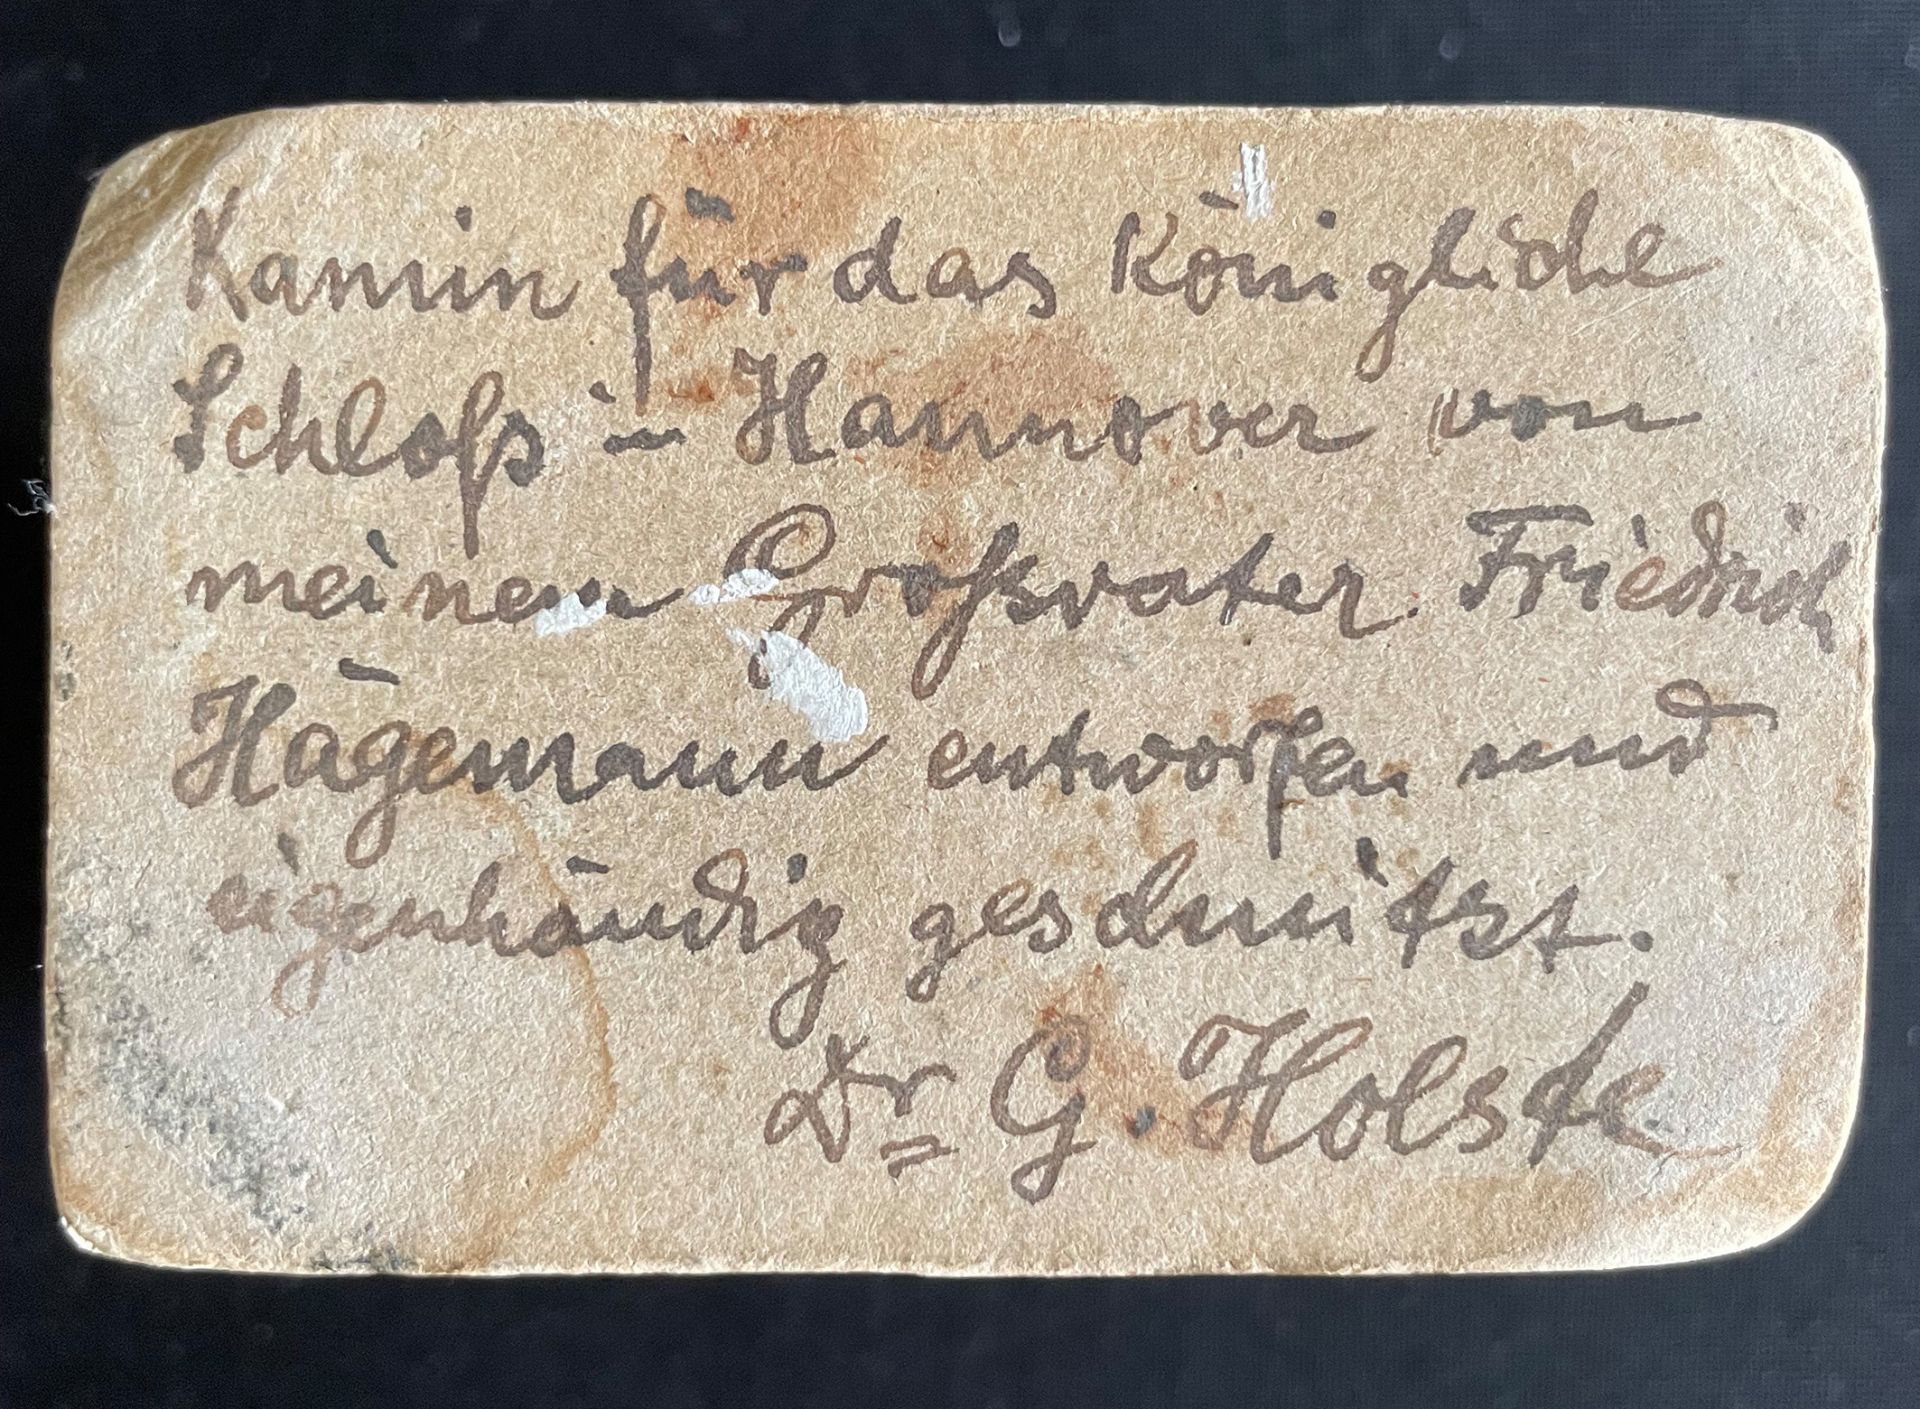 Kamin für das Königliche
Schloß in Hannover von
meinem Großvater Friedrich
Hägemann entworfen und
eigenhändig geschnitzt.
Dr G. Holste